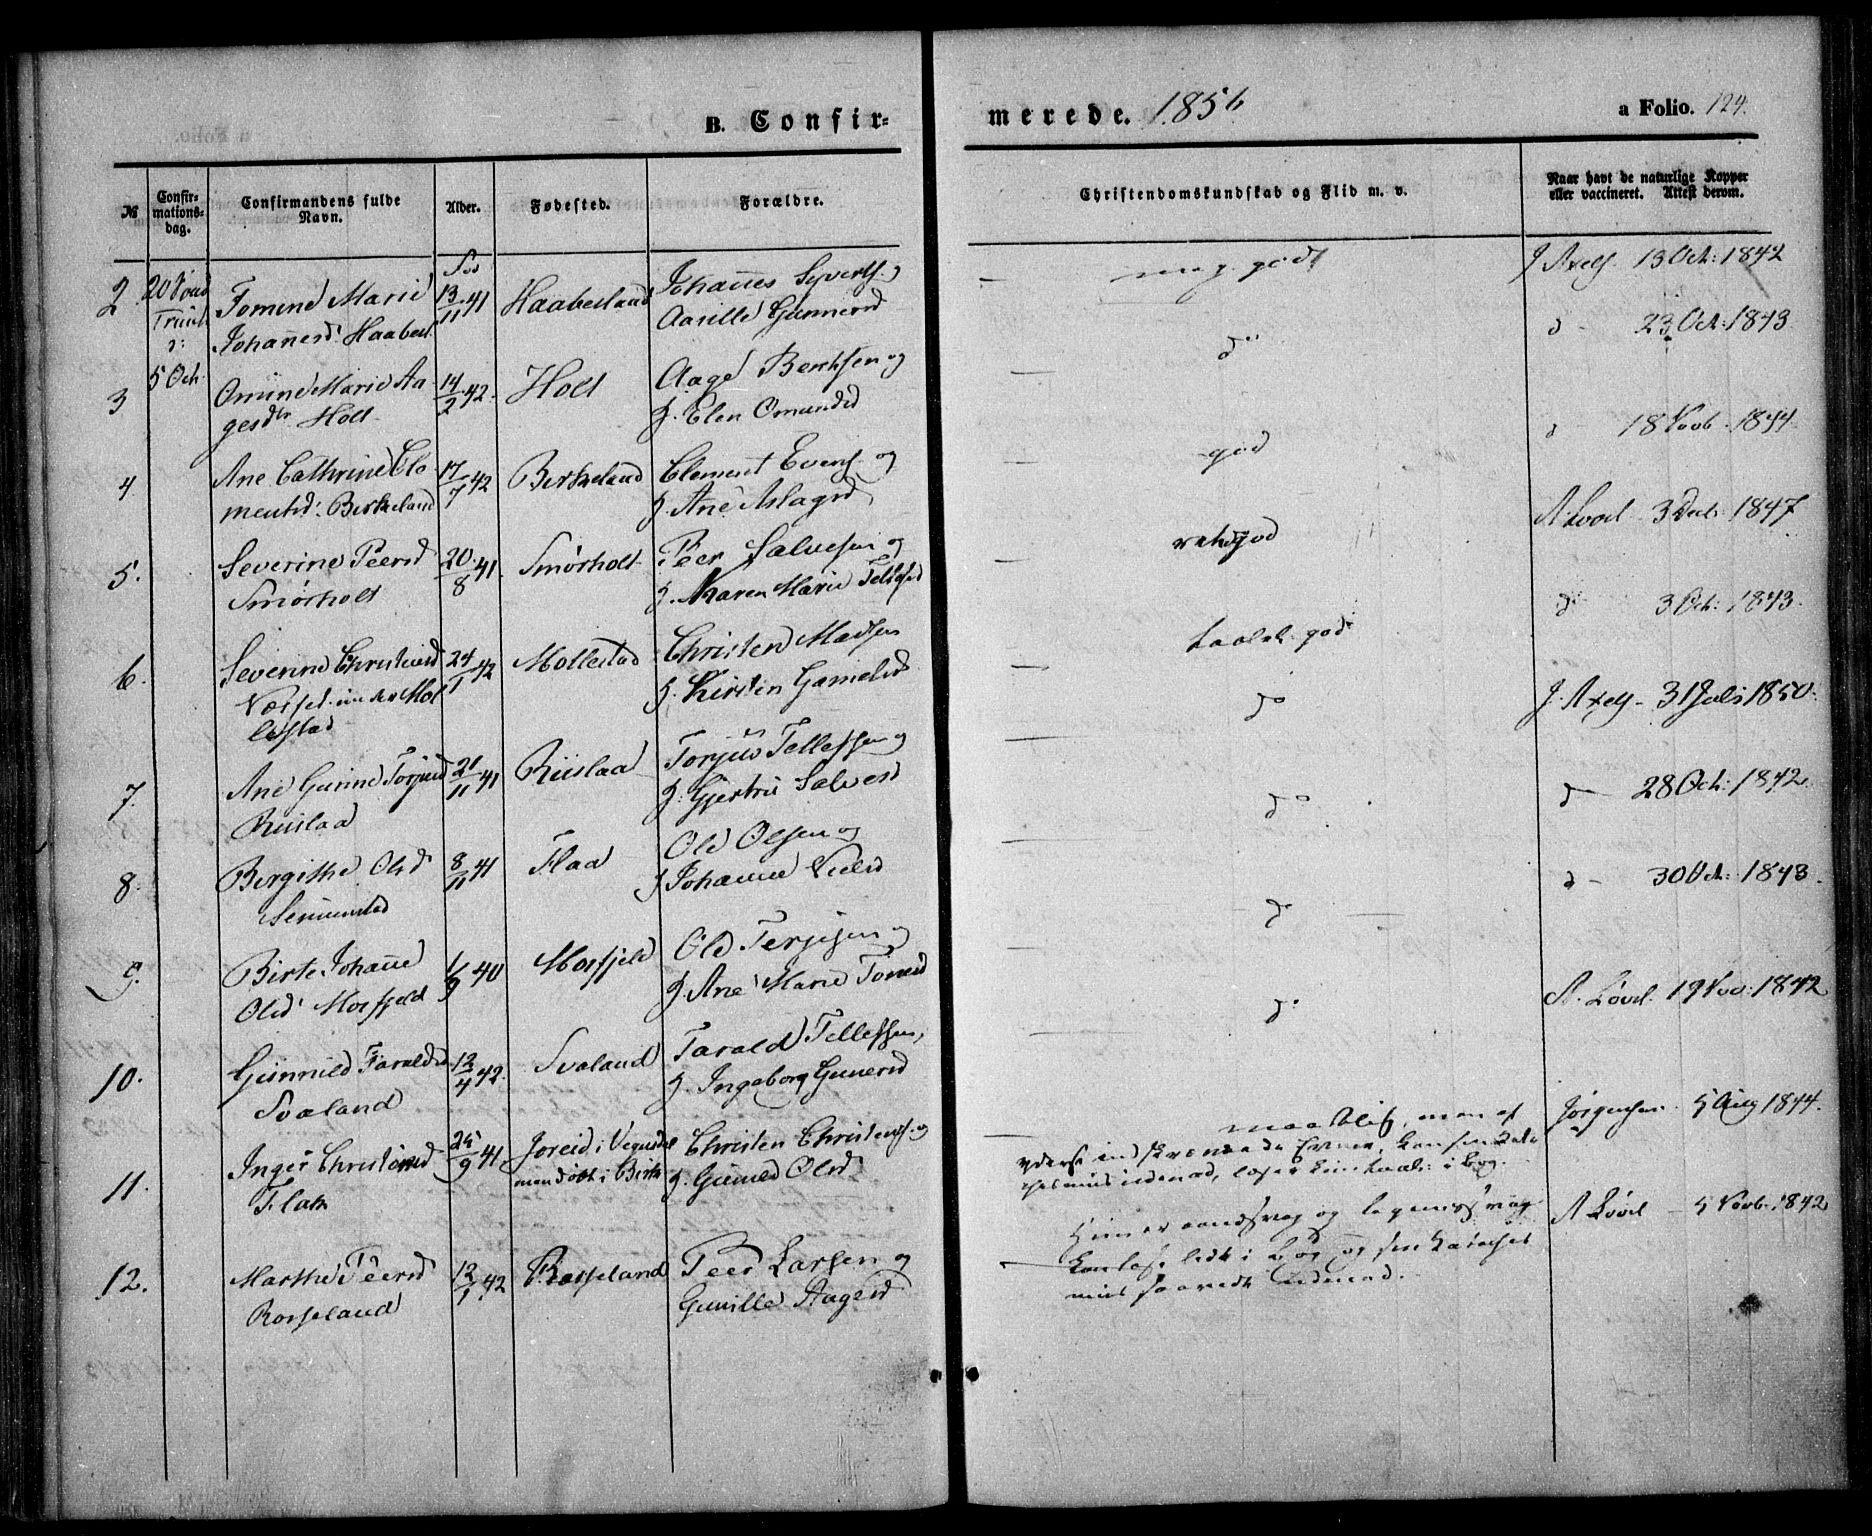 B. Confir-
merede. 1856
a Folio. 124.
№
Confir-
mations-
dag.
Confirmandens fulde
Navn.
Alder.
Fødested.
Forældre.
Christendomskundskab og Flid m. v.
Naar havt de naturlige Kopper
eller vaccineret. Attest derom.
2
Tomine Marie
Johannesd. Haabesl
13/11 41
Haabesland
Johannes Syverts. og
Aasille Gunnersd
meg. godt
J Axels. 13 Oct: 1842
5 Oct.
3
Omine Marie Aa
gesdtr Holt
14/2 42.
Holt
Aage Berthsen og
J. Elen Omundsd
do
d - 23 Oct: 1843
4
Ane Cathrine Cle
mentsd. Birkeland
17/7 42
Birkeland
Clement Evens. og
J. Ane Aslagsd
god
d - 18 Novb. 1844
5.
Severine Peersd
Smørholt
20/8 41.
Smørholt
Peer Salvesen og
J. Karen Marie Tellefsd
A. Løvel 3 1847
6.
Severine Christensd
Mol
lestad
24/1 42
Mollestad
Christen Madsen
J. Kirsten Gamelsd
god
d 3 Oct: 1843.
7.
Ane Gurine Torjusd
Riislaa
21/11 41
Riislaa
Torjus Tellefsen og
J. Gjertrud Salvesd
do
J. Axels - 31 Juli 1850.
8.
Bergithe Olsd
8/11 41
Flaa
Ole Olsen og
J Johanne Nielsd
do
d - 28 Oct: 1842.
9.
Birte Johanne
Olsd Mosfjeld
1/9 40
Mosfjeld
Ole Terjesen og
J. Ane Marie Tomesd
d
d - 30 Oct: 1843.
10.
Gunnild Taraldsd
Svaland
12/4 42.
Svaland
Tarald Tellefsen,
J. Ingeborg Gunersd
d
A. Løvel. 19 Nov: 1842
11.
Inger Christensd
Flaa
25/9 41
Joreid i Vegusdal
men døbt i Birk
Christen Christens. og
J. Guneld Olsd
men af
Jørgensen. 5 Aug 1844.
12.
Marthe Peersd
Rosseland
12/1 42
Rosseland
Peer Larsen og
Gunille Aagesd
Hun er aandsvag og legemssvag
kan læse lidt i Bog og sin Katechis
mus udenad.
A Løvel - 5 Novb. 1842